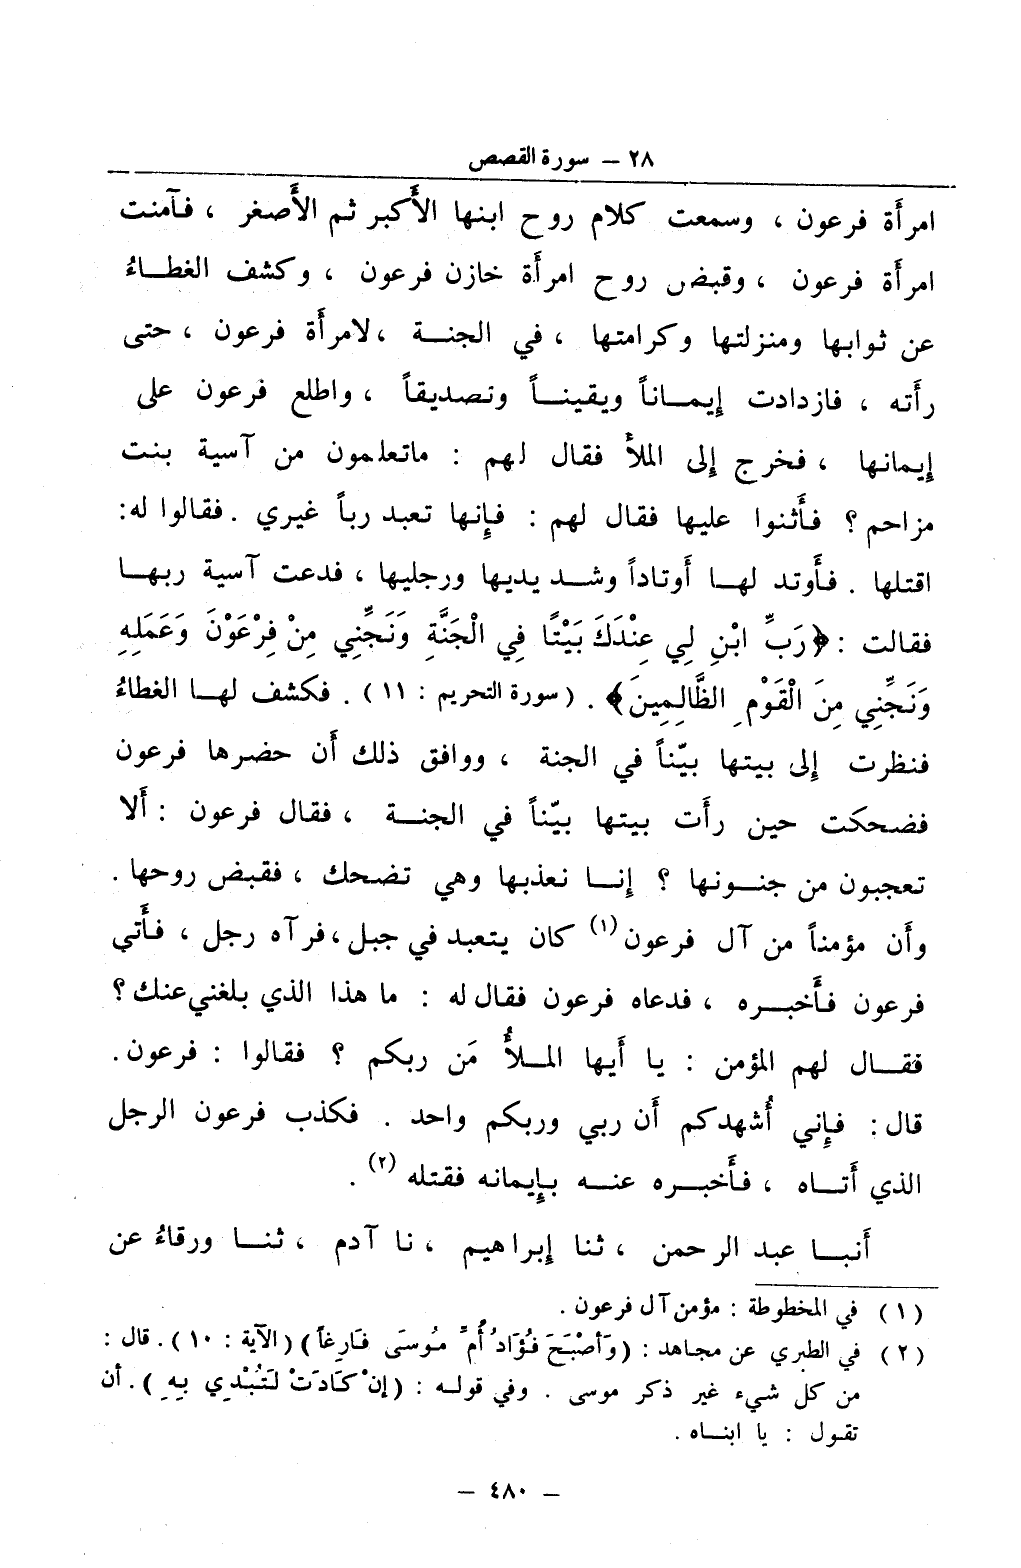 ٢٨ – سورة القصص
امرأة فرعون ، وسمعت كلام روح ابنها الأكبر ثم الأصغر ، فآمنت
امرأة فرعون ، وقبض روح امرأة خازن فرعون ، وكشف الغطاءُ
عن ثوابها ومنزلتها وكرامتها ، في الجنة ، لامرأة فرعون ، حتى
رأته ، فازدادت إيماناً ويقيناً وتصديقاً ، واطلع فرعون على
إيمانها ، فخرج إلى الملأ فقال لهم : ماتعلمون من آسية بنت
مزاحم ؟ فأثنوا عليها فقال لهم : فإنها تعبد رباً غيري . فقالوا له :
اقتلها . فأوتد لها أوتاداً وشد يديها ورجليها ، فدعت آسية ربها
فقالت : ﴿رَبِّ ابْنِ لِي عِنْدَكَ بَيْتًا فِي الْجَنَّةِ وَنَجِّنِي مِنْ فِرْعَوْنَ وَعَمَلِهِ
وَنَجِّنِي مِنَ الْقَوْمِ الظَّالِمِينَ﴾ . ( سورة التحريم : ١١ ) . فكشف لها الغطاءُ
فنظرت إلى بيتها بيّناً في الجنة ، ووافق ذلك أن حضرها فرعون
فضحكت حين رأت بيتها بيّناً في الجنة ، فقال فرعون : ألا
تعجبون من جنونها ؟ إنا نعذبها وهي تضحك ، فقبض روحها .
وأن مؤمناً من آل فرعون (١) كان يتعبد في جبل ، فرآه رجل ، فأتى
فرعون فأخبره ، فدعاه فرعون فقال له : ما هذا الذي بلغني عنك ؟
فقال لهم المؤمن : يا أيها الملأُ مَن ربكم ؟ فقالوا : فرعون .
قال : فإني أُشهدكم أن ربي وربكم واحد . فكذب فرعون الرجل
الذي أتاه ، فأخبره عنه بإيمانه فقتله (٢) .
أنبا عبد الرحمن ، ثنا إبراهيم ، نا آدم ، ثنا ورقاءُ عن
( ١ ) في المخطوطة : مؤمن آل فرعون .
( ٢ ) في الطبري عن مجاهد : ( وَأَصْبَحَ فُؤَادُ أُمِّ مُوسَى فَارِغاً ) ( الآية : ١٠ ) . قال :
من كل شيء غير ذكر موسى . وفي قوله : ( إِنْ كَادَتْ لَتُبْدِي بِهِ ) . أن
تقول : يا ابناه .
– ٤٨٠ –